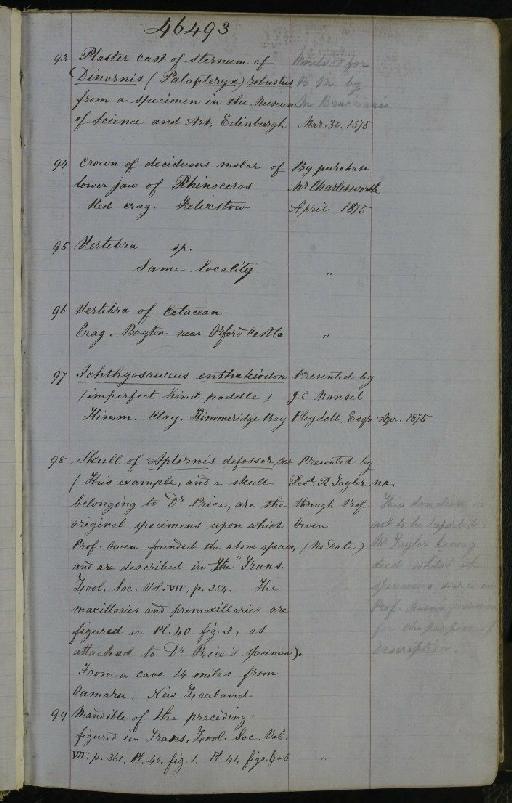 46493
93 Plaster cast of sternum of
Dinornis (Palapteryx) robustus
from a specimen in the Museum
of Science and Art, Edinburgh Mar. 30. 1875
94 Crown of deciduous molar of By purchase
lower jaw of Rhinoceros Mr Charlesworth
Red Crag. Felixstow April 1875
95 Vertebra sp.
Same locality "
96 Vertebra of Cetacean
Crag. Boyton near Orford Castle "
97 Ichthyosaurus enthekiodon Presented by
(imperfect hind paddle) J.C. Mansel
Kimm. Clay. Kimmeridge Bay Pleydell, Esqr Apr. 1875
98 Skull of Aptornis defossor, Ow. Presented by
(This example, and a skull Revd. R. Taylor
belonging to Dr Price, are the through Prof.
original specimens upon which Owen
Prof. Owen founded the above species, (No date.)
and are described in the "Trans.
Zool. Soc. Vol. VII, p. The
maxillaries and premaxillaries are
figured in Pl. 40 fig. 2, as
attached to Dr Price's specimen).
From a cave 14 miles from
Oamaru. New Zealand.
99 Mandible of the preceding
figured in Trans. Zool. Soc. Vol.
VII. p. 361. Pl. 42. fig. 1. Pl. 41. figs. "